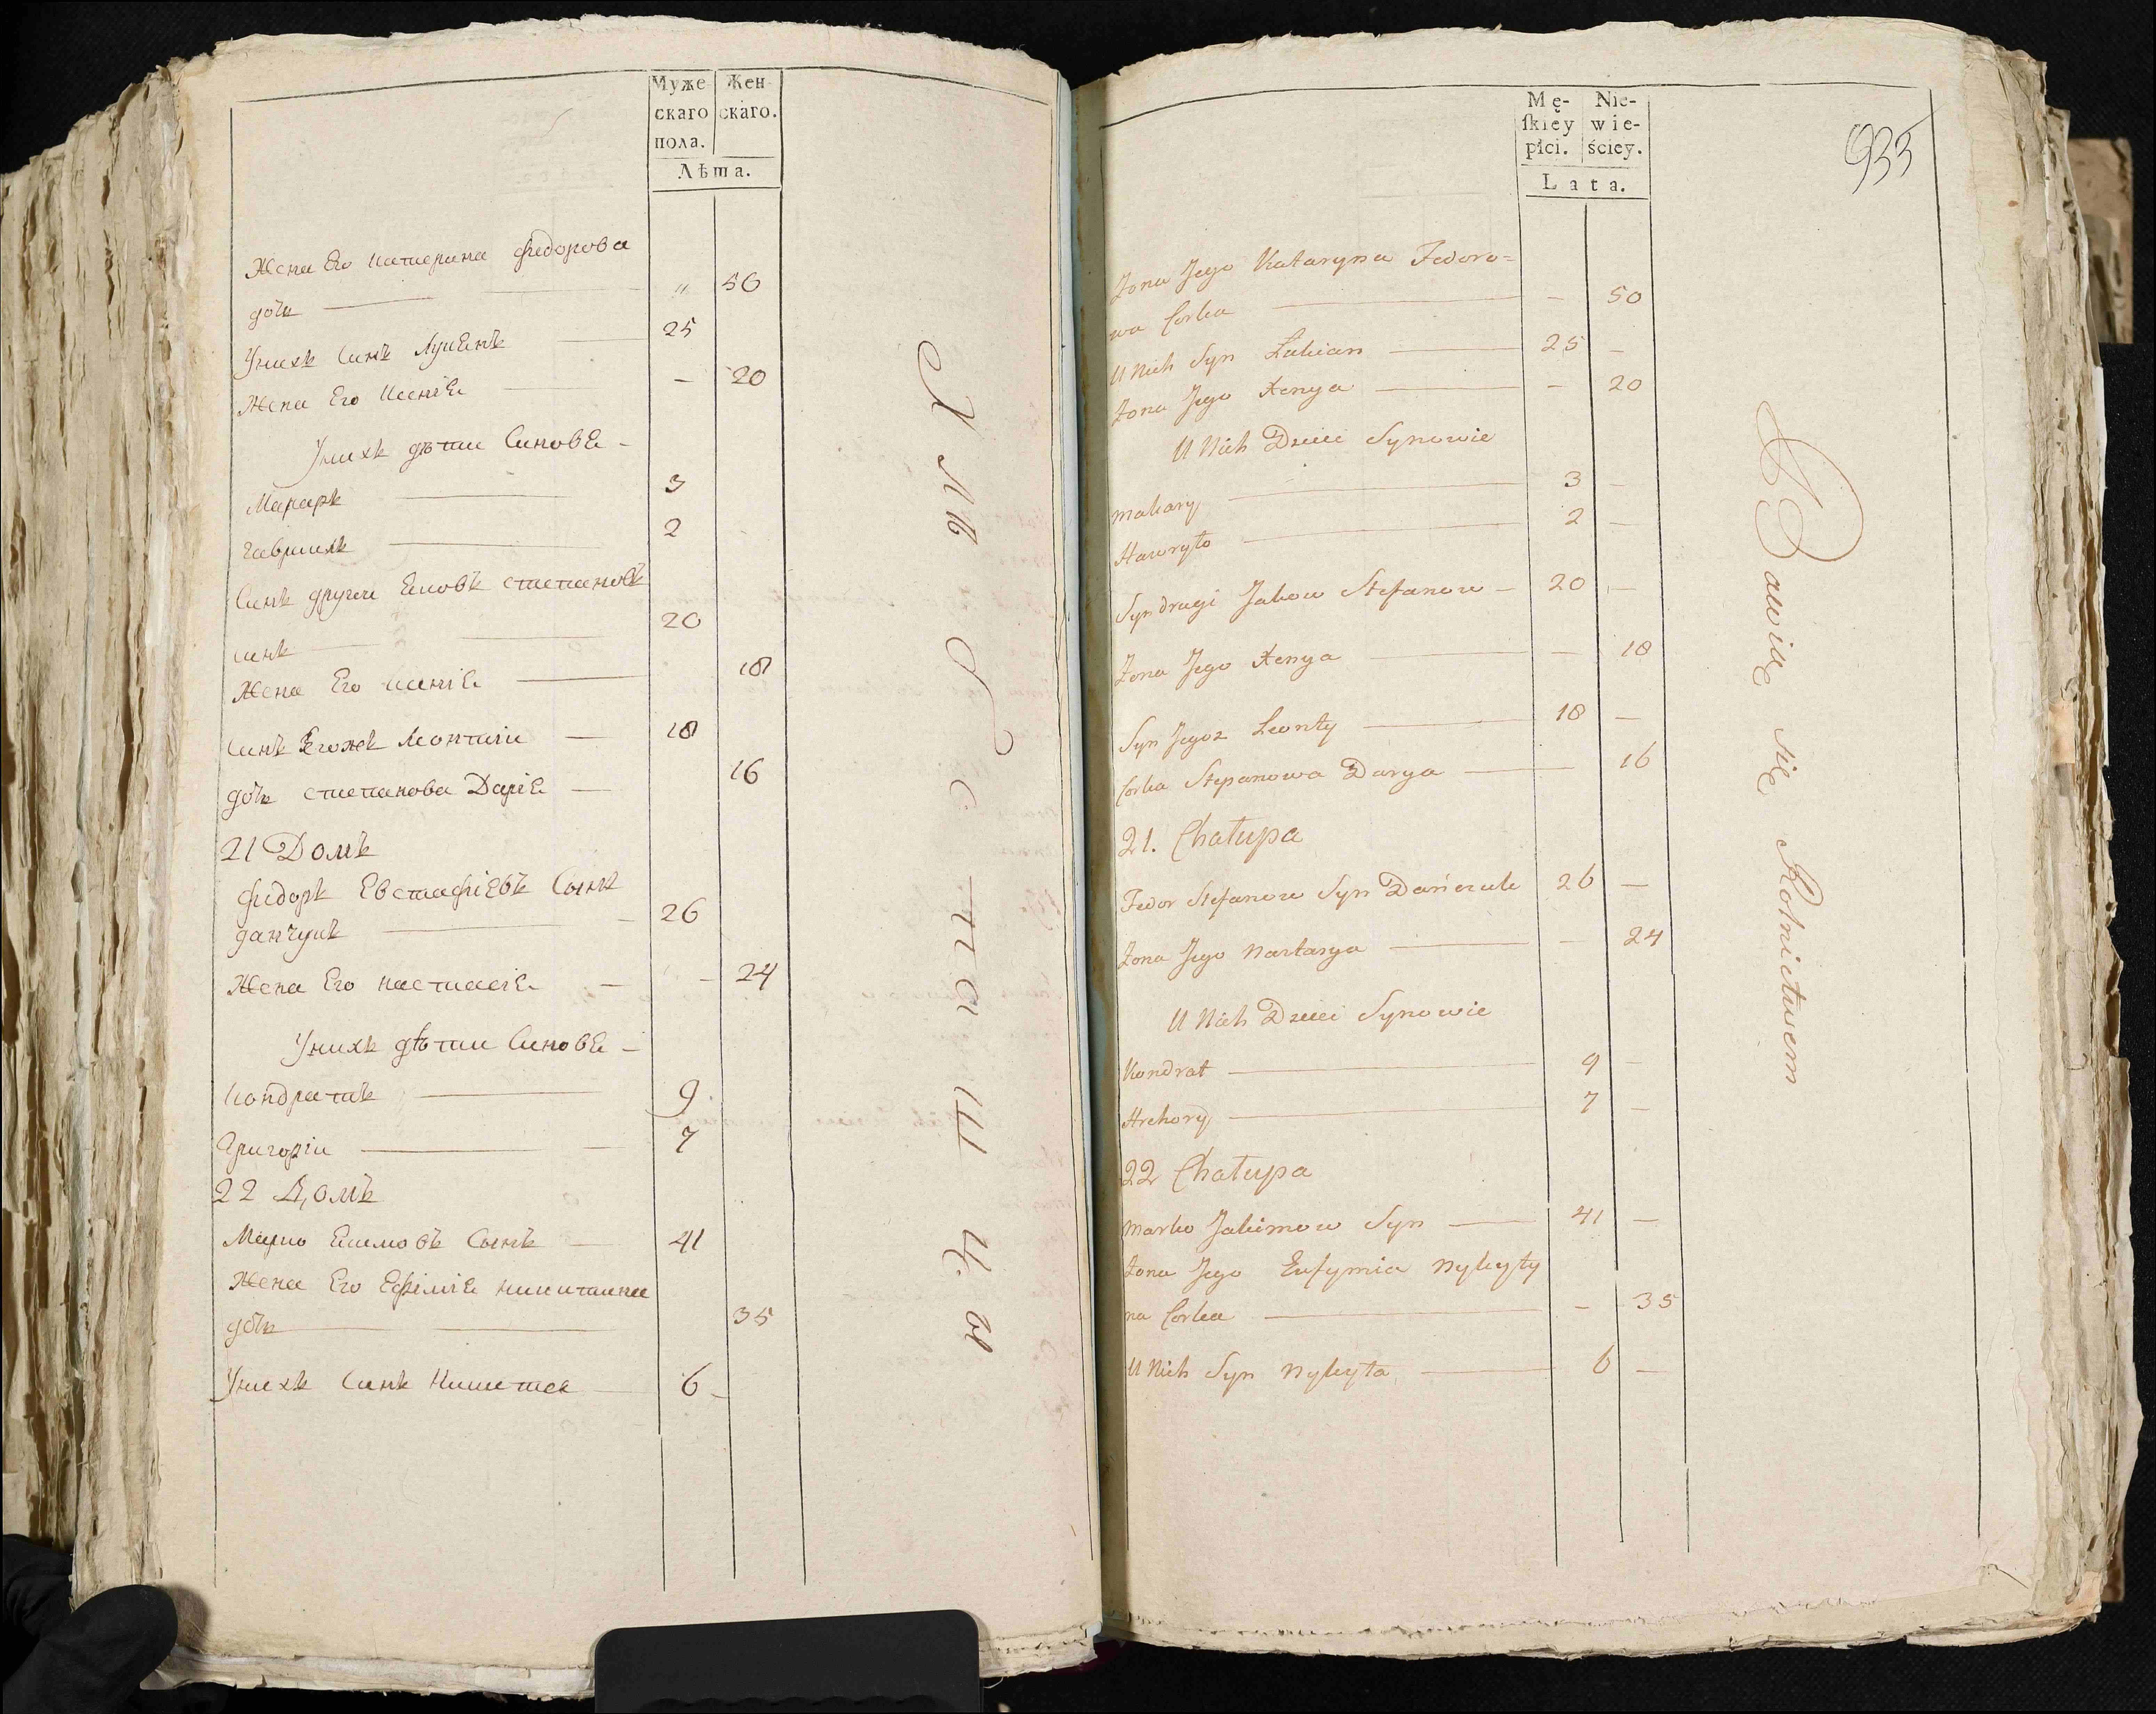 Муже Жен
скаго скаго.
пола.
Лѣта.
Жена Его катерина федорова
дочь — " 50
Унихъ Синъ Лукѣянъ — 25
Жена Его ксеніѣ — - 20
Унихъ дѣти Синовѣ -
Макаръ — 3
гаврилъ — 2
Синъ други Ековъ степановъ
синъ — 20
Жена Его ксеніѣ — 18
Синъ Егожъ Леонтіи — 18
дочь степанова Даріѣ — 16
21 Домъ
федоръ Евстафіевъ Сынъ
данчукъ — 26
Жена Его настасіѣ — - 24
Унихъ дѣти Синовѣ -
кондратъ — 9
Григоріи — 7
22 Домъ
Марко Екимовъ Сынъ — 41
Жена Его Ефіміѣ никитина
дочь — 35
Унихъ Синъ Никита — 6 -
Mę- Nie-
ſkiey wie-
płci. ściey.
Lata.
935
Żona Jego Kataryna Fedoro=
wa Corka — - 50
U Nich Syn Łukian — 25 -
Żona Jego Xenya — - 20
U Nich Dzieci Synowie
Makary — 3 -
Hawryło — 2 -
Syn drugi Jakow Stefanow — 20 -
Żona Jego Xenya — - 18
Syn Jegoz Leonty — 18 -
Corka Stepanowa Darya — 16
21. Chałupa
Fedor Stefanow Syn Dańczuk 26 -
Żona Jego Nastasya — - 24
U Nich Dzieci Synowie
Kondrat — 9 -
Hrehory — 7 -
22 Chałupa
Marko Jakimow Syn — 41 -
Żona Jego Eufymia Nykyty
na Corka — - 35
U Nich Syn Nykyta — 6 -
Bawią się Rolnictwem